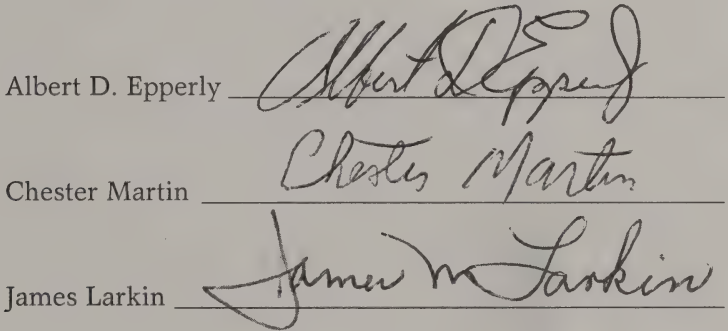 Albert D. Epperly Albert D Epperly
Chester Martin Chester Martin
James Larkin James M Larkin